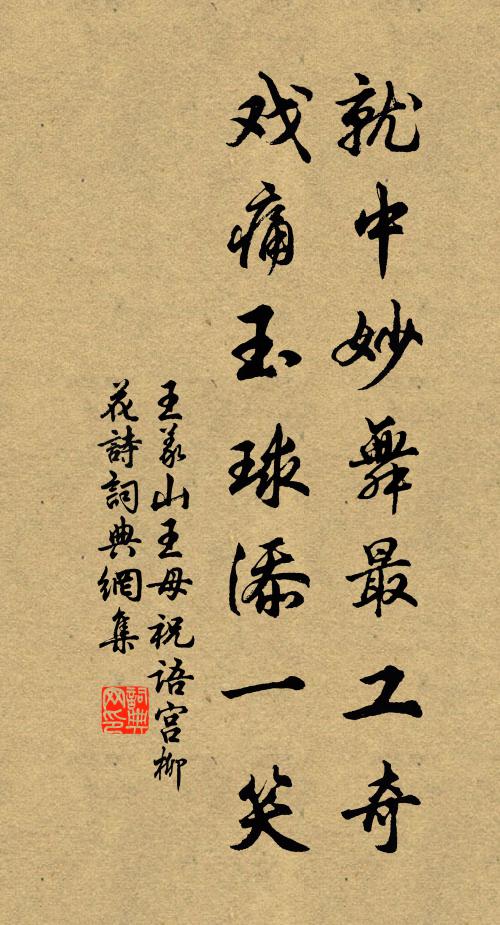 就中妙舞最工奇
戏痛玉球添一笑
王义山王母祝语宫柳
花詩詞典網集
詞典网印